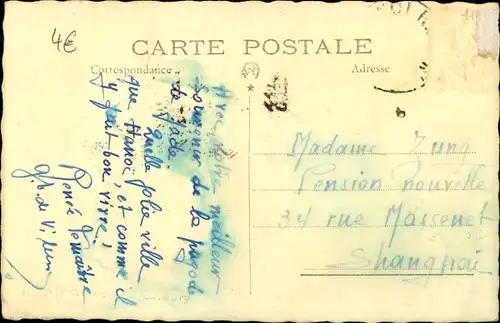 4€
CARTE POSTALE
Correspondance
Adresse
Avec notre meilleur
souvenir de la pagode
de Jade.
Quelle jolie ville
que Hanoï, et comme il
y fait bon vivre!
Renée Lemaître
Madame Jung
Pension nouvelle
34 rue Massenet
Shanghaï